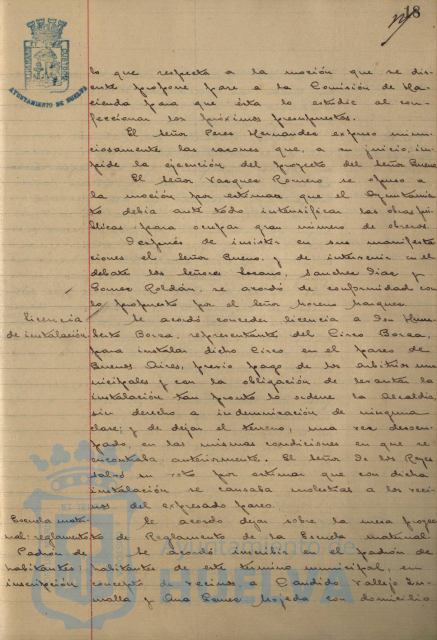 18
AYUNTAMIENTO DE HUELVA
lo que respecta a la moción que se dis-
cute propone pase a la Comisión de Ha-
cienda para que ésta lo estudie al con-
feccionar los próximos presupuestos.
El Señor Peres Hernandez expuso minu-
ciosamente las razones que, a su juicio, im-
pide la ejecución del proyecto del Señor Bueno
El Señor Vazquez Romero se opuso a
la moción por estimar que el Ayuntamien-
to debia ante todo intensificar las obras pú-
blicas para ocupar gran número de obreros.
Después de insistir en sus manifesta-
ciones el Señor Bueno, y de intervenir en el
debate los Señores Lozano, Sanchez Diaz y
Gomez Roldán, se acordó de conformidad con
lo propuesto por el Señor Moreno Marquez
Licencia
de instalación
Se acordó conceder licencia a Don Hum-
berto Borza, representante del Circo Borza,
para instalar dicho Circo en el paseo de
Buenos Aires, previo pago de los arbitrios mu-
nicipales y con la obligación de levantar la
instalación tan pronto lo ordene la Alcaldía
sin derecho a indemnización de ninguna
clase; y de dejar el terreno, una vez desocu-
pado, en las mismas condiciones en que se
encontraba anteriormente. El Señor de los Reyes
salvó su voto por estimar que con dicha
instalación se causaba molestias a los veci-
nos del expresado paseo.
Escuela mater-
nal: reglamento
Se acordó dejar sobre la mesa proyec-
to de Reglamento de la Escuela maternal.
Padrón de
habitantes:
inscripción
Se acordó inscribir en el padrón de
habitantes de este término municipal, en
concepto de vecinos a Candido Vallejo
y Ana Gomez Mojeda con domicilio
Ayuntamiento de
HUELVA